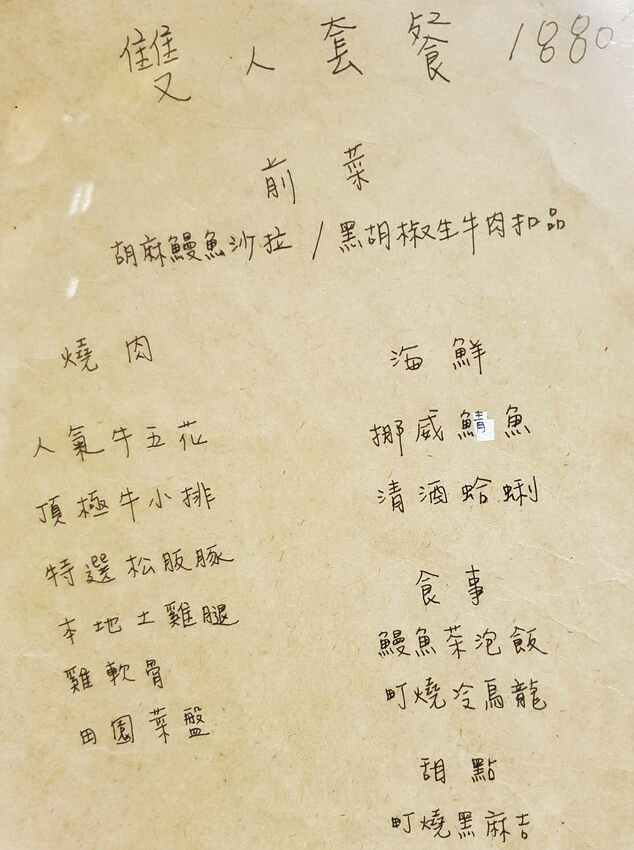 雙人套餐 1880
前菜
胡麻鰻魚沙拉 / 黑胡椒生牛肉扣品
燒肉
人氣牛五花
頂極牛小排
特選松阪豚
本地土雞腿
雞軟骨
田園菜盤
海鮮
挪威鯖魚
清酒蛤蜊
食事
鰻魚茶泡飯
町燒冷烏龍
甜點
町燒黑麻吉